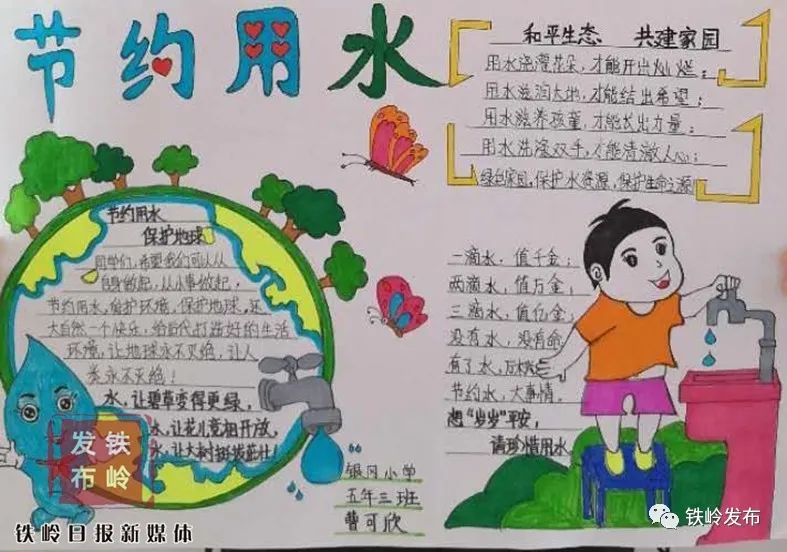 节约用水
和平生态 共建家园
用水浇灌花朵，才能开出灿烂；
用水滋润大地，才能结出希望；
用水滋养孩童，才能长出力量；
用水洗涤双手，才能清澈人心；
绿色家园，保护水资源，保护生命之源
节约用水
保护地球
同学们，希望我们可以从
自身做起，从小事做起，
节约用水，保护环境，保护地球，还
大自然一个快乐，给后代打造好的生活
环境，让地球永不灭绝，让人
类永不灭绝！
水，让碧草变得更绿，
水，让花儿竞相开放，
水，让大树挺拔茁壮！
一滴水，值千金；
两滴水，值万金，
三滴水，值亿金；
没有水，没有命
有了水，万木
节约水，大事情。
想“岁岁”平安，
请珍惜用水
银冈小学
五年三班
曹可欣
铁岭
发布
铁岭日报新媒体
铁岭发布